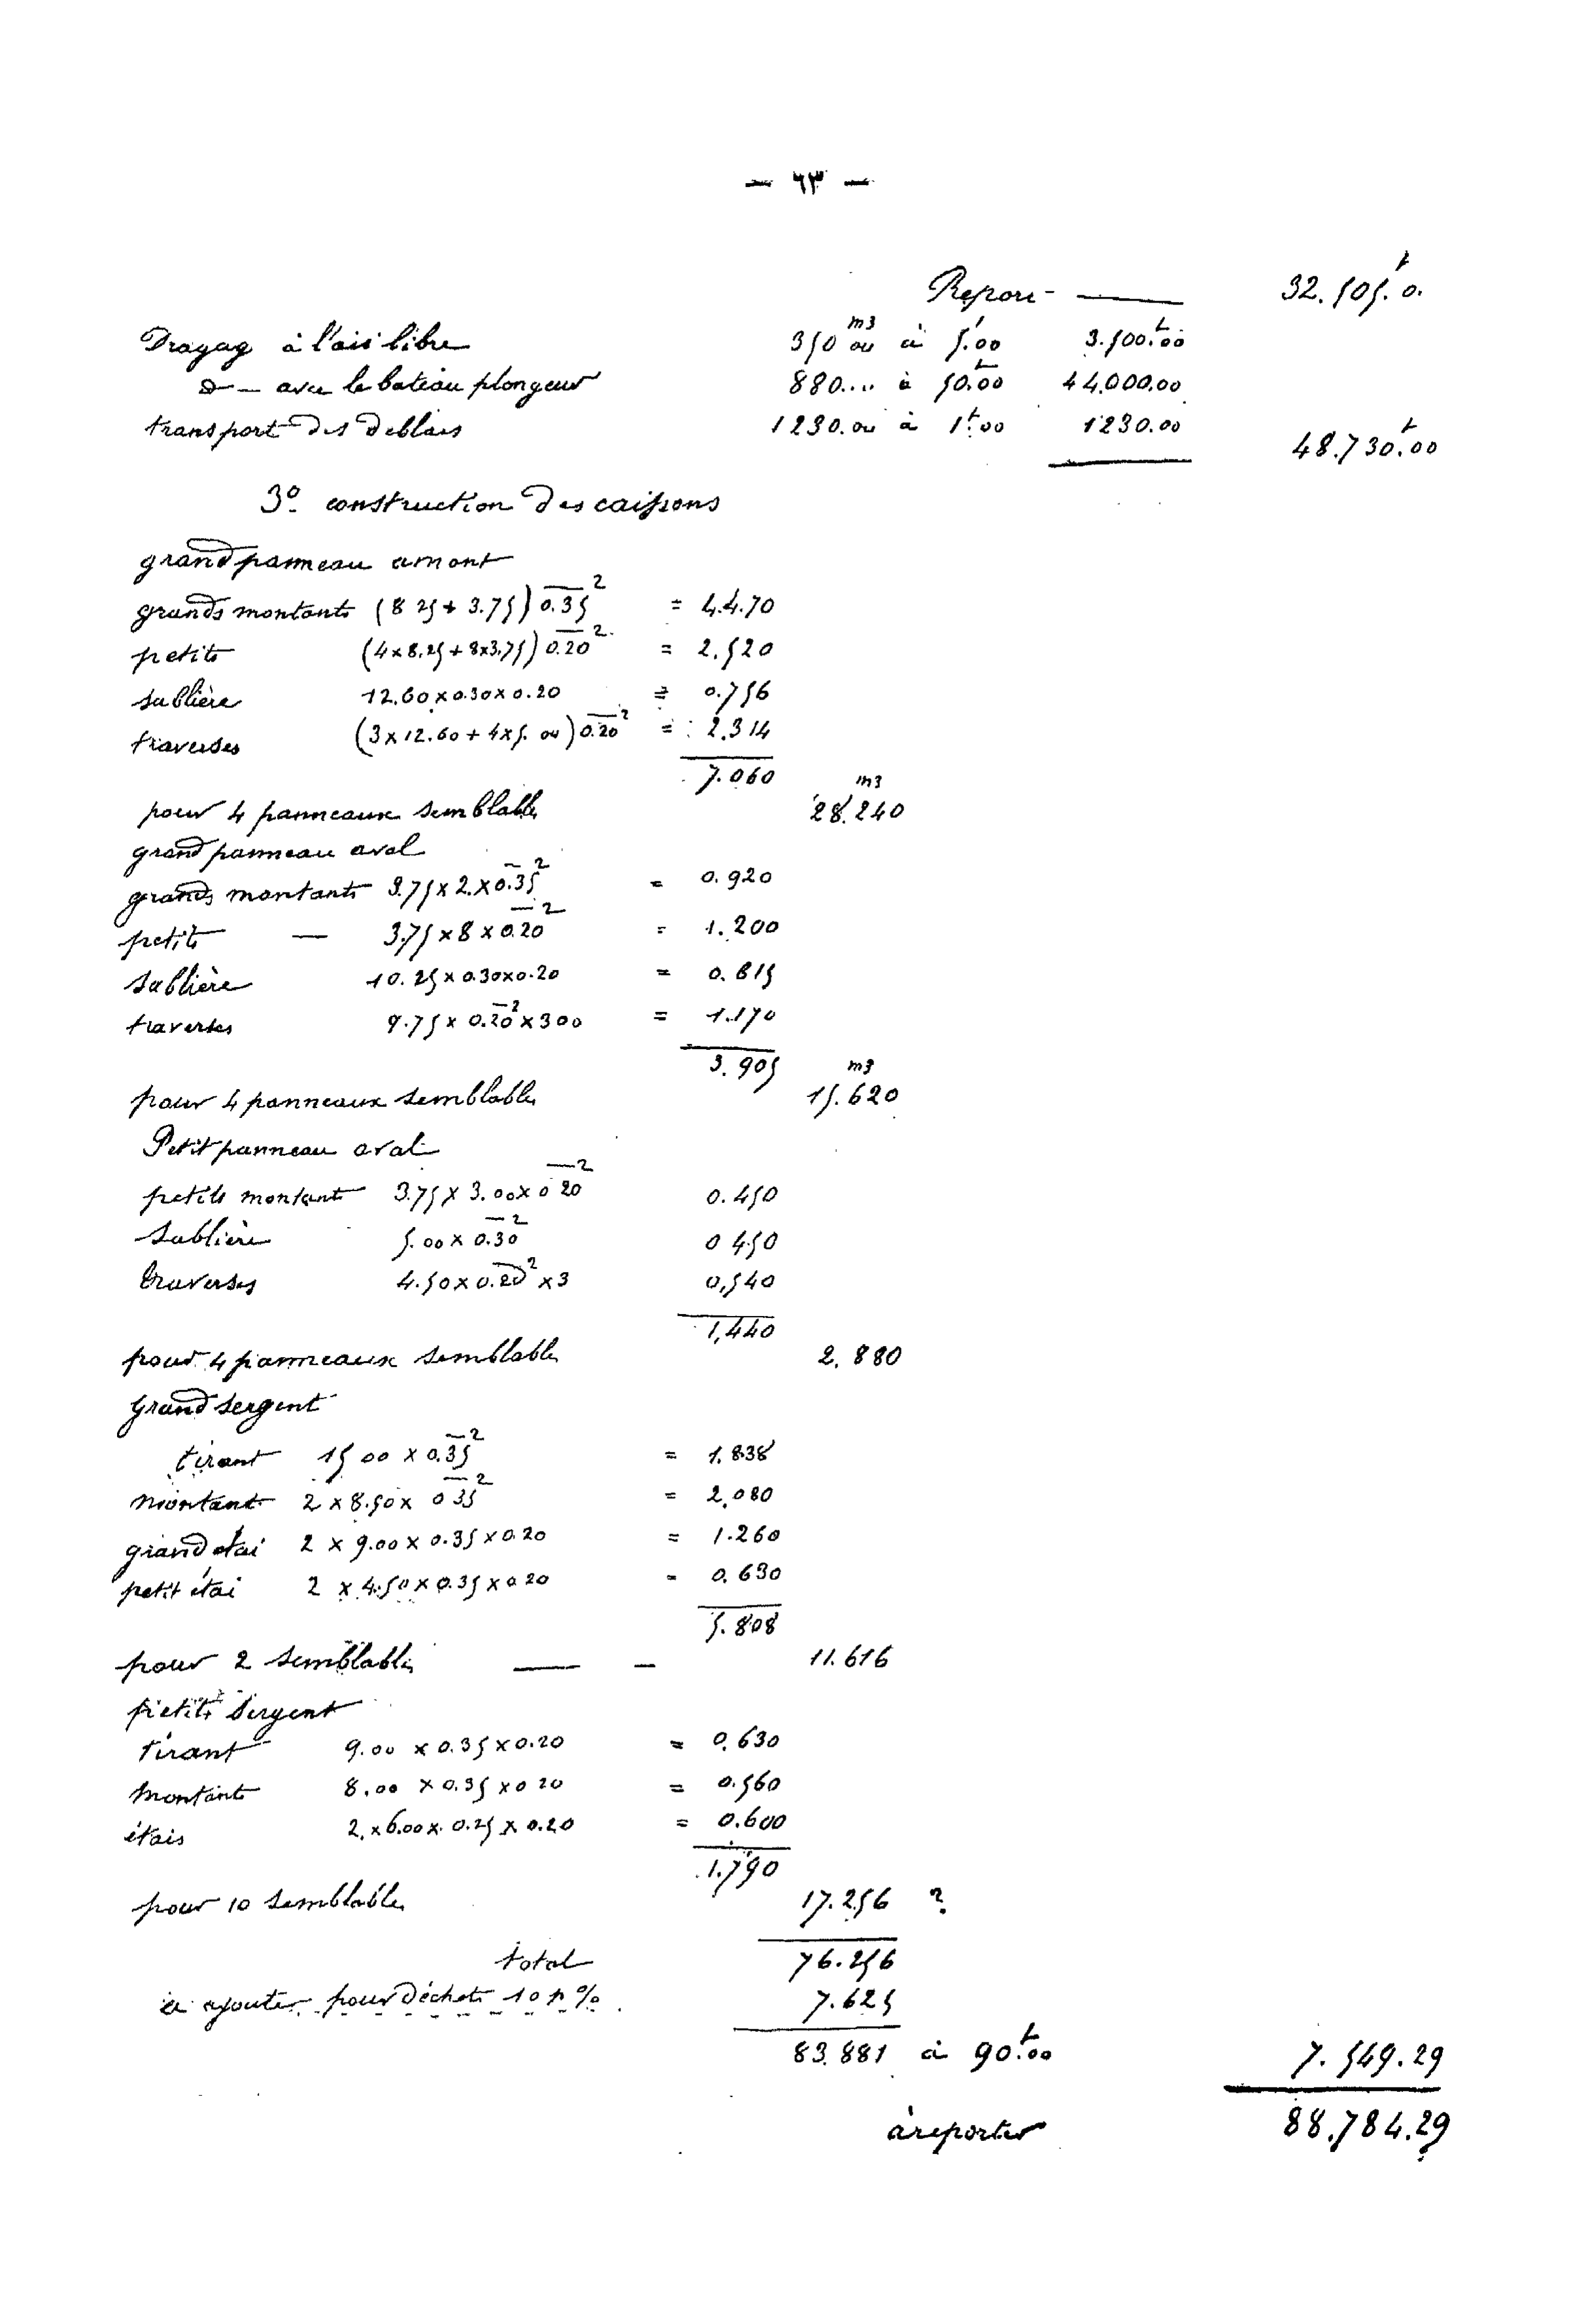 — ٦٣ —
Report — 32.505.0.
Dragag à l'air libre 350 m3 00 à 5.00 3.500.00
do — avec le bateau plongeur 880.... à 50.00 44.000.00
transport des deblais 1230.00 à 1.00 1230.00
48.730.00
3o construction des caissons
grand panneau amont
grands montants (8 25 + 3.75) 0.35² = 4.4.70
petits (4×8.25 + 8×3.75) 0.20² = 2.520
sablière 12.60×0.30×0.20 = 0.756
traverses (3×12.60 + 4×5.00) 0.20² = 2.314
7.060
pour 4 panneaux semblables 28.240 m3
grand panneau aval
grands montants 3.75×2.×0.35² = 0.920
petits — 3.75×8×0.20² = 1.200
sablière 10.25×0.30×0.20 = 0.615
traverses 9.75×0.20²×300 = 1.170
3.905
pour 4 panneaux semblables 15.620 m3
Petit panneau aval
petits montant 3.75×3.00×0 20² 0.450
sablière 5.00×0.30² 0 450
traverses 4.50×0.20²×3 0,540
1,440
pour 4 panneaux semblables 2.880
grand sergent
tirant 15 00 × 0.35² = 1.838
montant 2×8.50× 0 35² = 2,080
grand étai 2 × 9.00 × 0.35×0.20 = 1.260
petit étai 2 × 4.50×0.35×0.20 = 0.630
5.808
pour 2 semblables — — 11.616
petits sergent
tirant 9.00 ×0.35×0.20 = 0.630
montants 8.00 ×0.35×0 20 = 0.560
étais 2.×6.00×0.25×0.20 = 0.600
1.790
pour 10 semblables 17.256 ?
total 76.256
à ajouter pour déchets 10 p % 7.625
83.881 à 90.00 7.549.29
à reporter 88.784.29